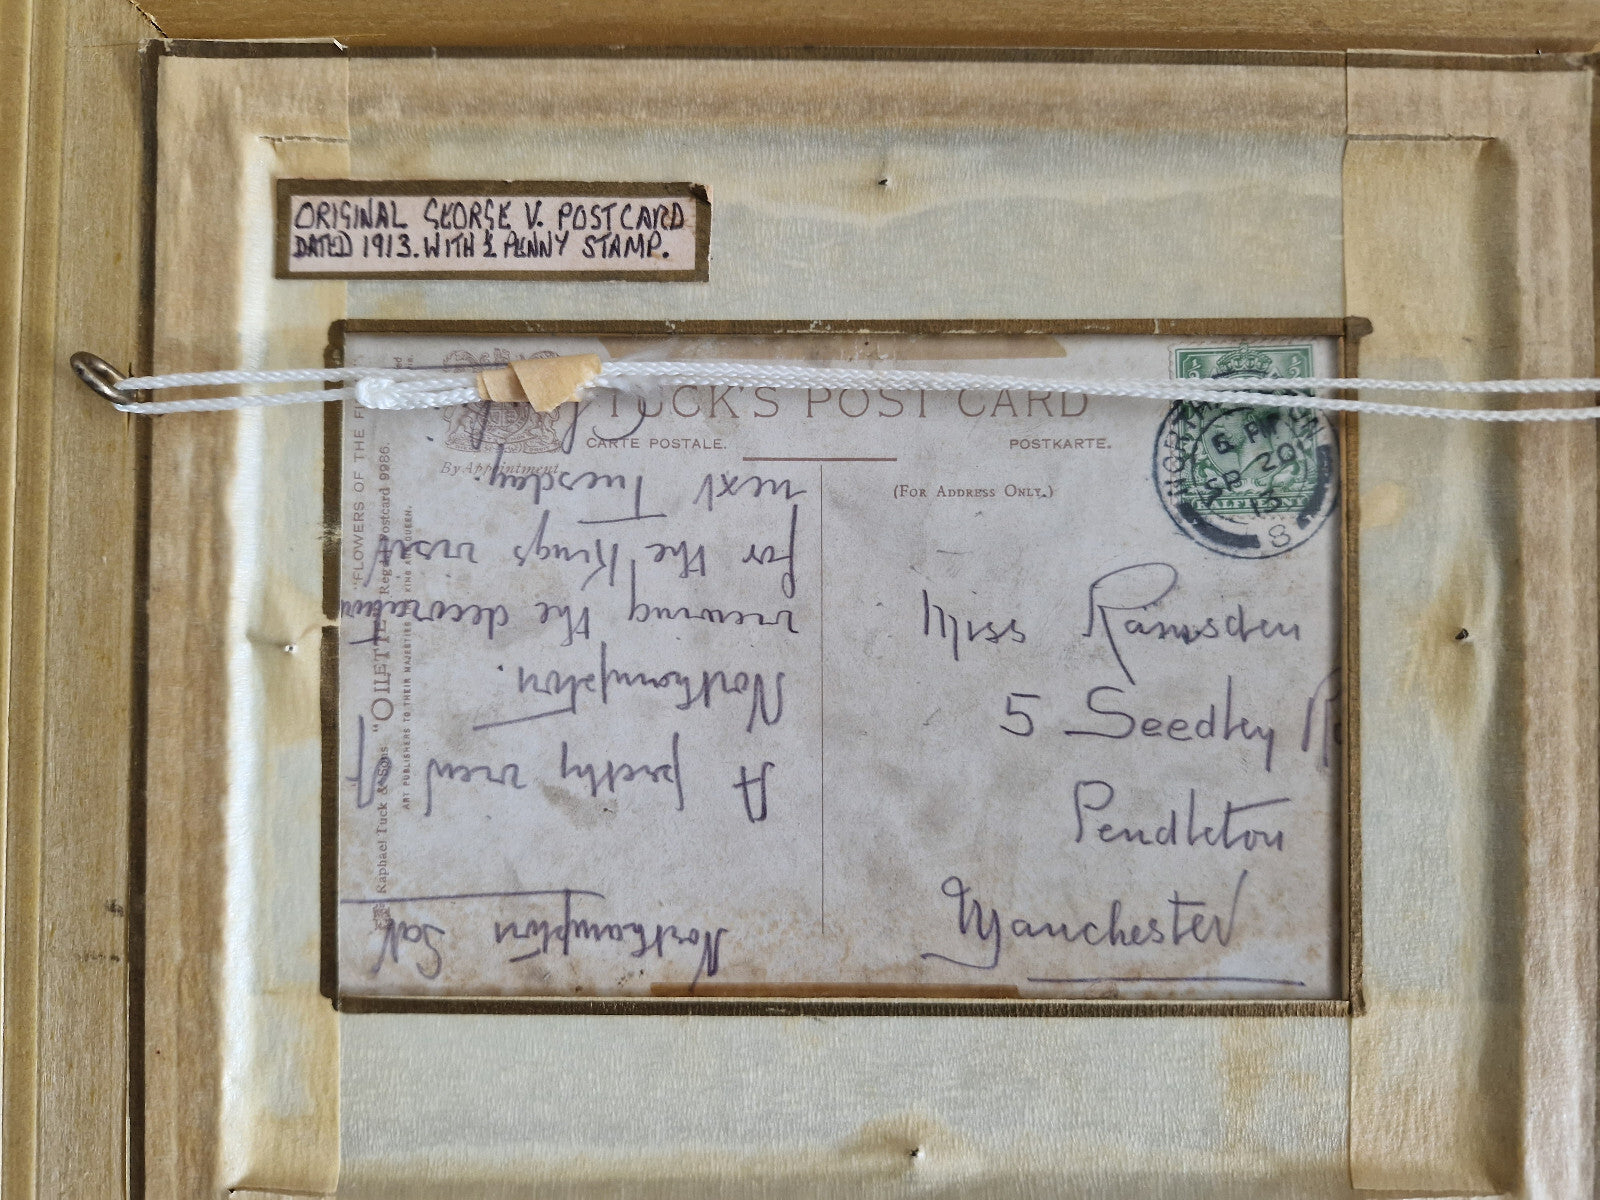 ORIGINAL GEORGE V. POSTCARD
DATED 1913. WITH ½ PENNY STAMP.
TUCK'S POST CARD
CARTE POSTALE.
POSTKARTE.
By Appointment
(FOR ADDRESS ONLY.)
NORTHAMPTON
6 PM
SP 20
13
8
HALFPENNY
Miss Ramsden
5 Seedley
Pendleton
Manchester
Northampton Sat
A pretty view
Northampton.
viewing the decorations
for the Kings visit
next Tuesday.
Raphael Tuck & Sons' "OILETTE" Postcard 9986.
"FLOWERS OF THE
ART PUBLISHERS TO THEIR MAJESTIES KING AND QUEEN.